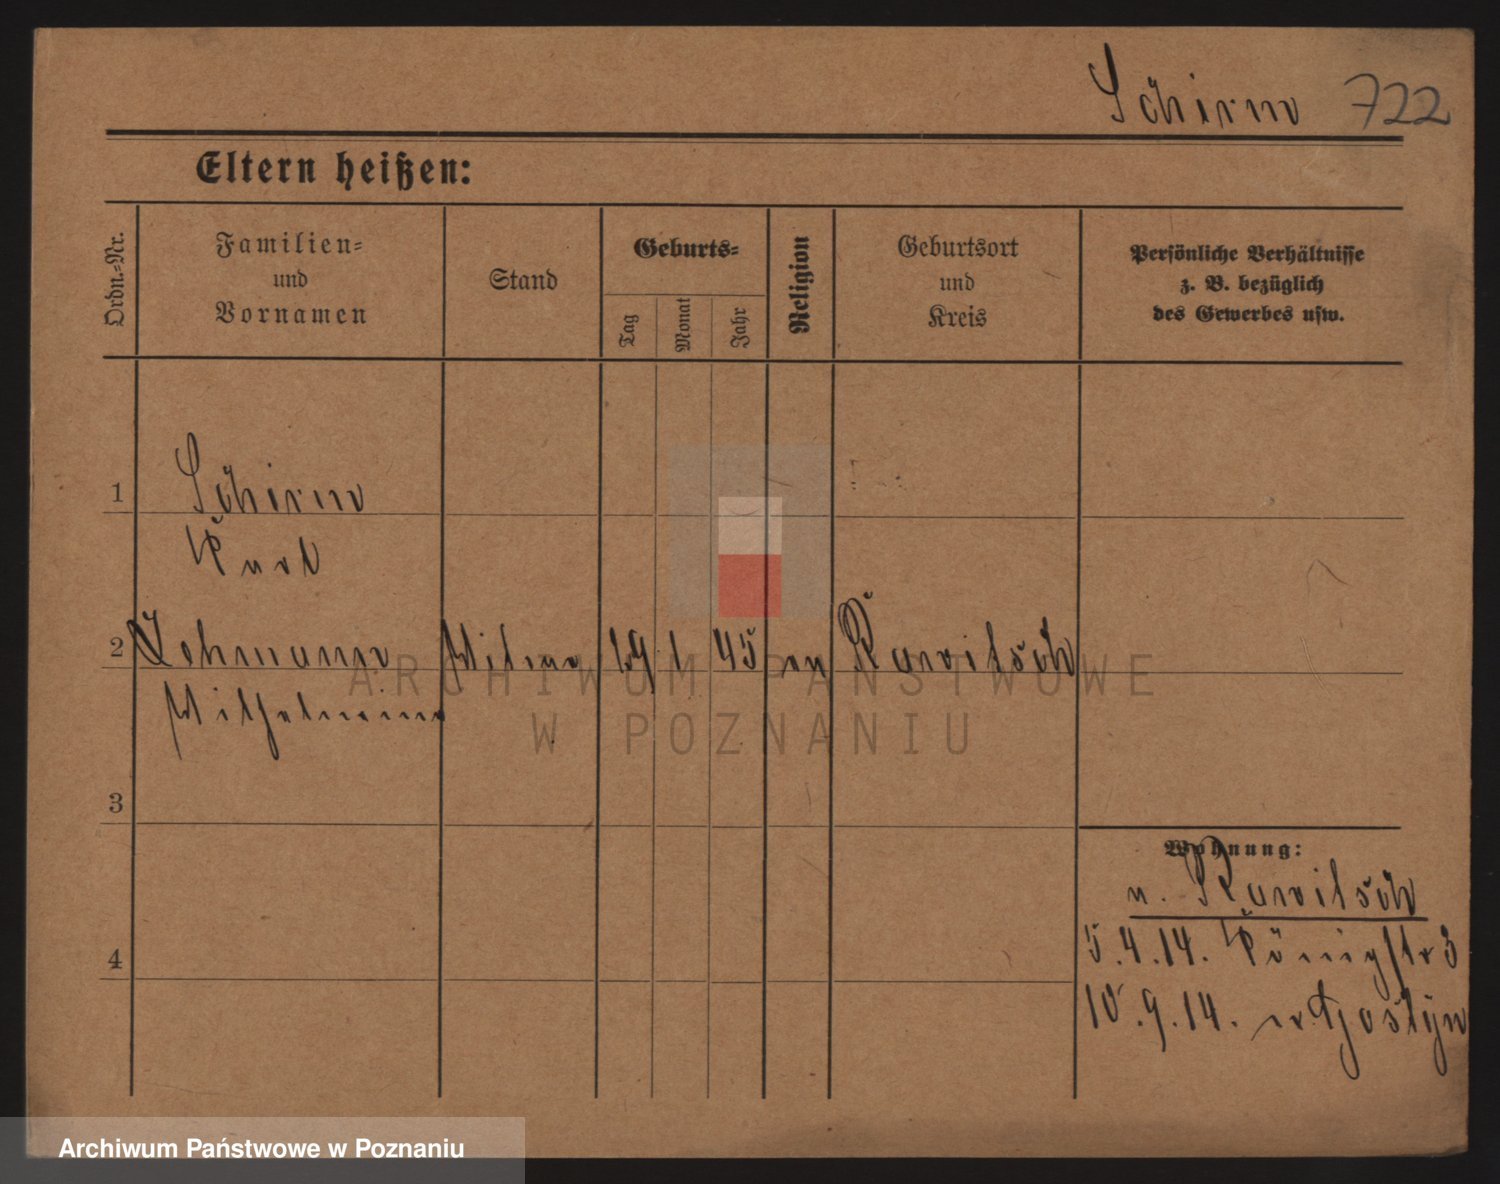 Schirm 722
Eltern heißen:
Ordn.-Nr.
Familien-
und
Vornamen
Stand
Geburts-
Tag
Monat
Jahr
Religion
Geburtsort
und
Kreis
Persönliche Verhältnisse
z. B. bezüglich
des Gewerbes usw.
1 Schirm
Kurt
2 Lehmann Witwe 1 45 ev Rawitsch
Wilhelmine
3
4
Wohnung:
v. Rawitsch
5.4.14. Königstr 3
10.9.14. n. Gostyn
ARCHIWUM PAŃSTWOWE
W POZNANIU
Archiwum Państwowe w Poznaniu